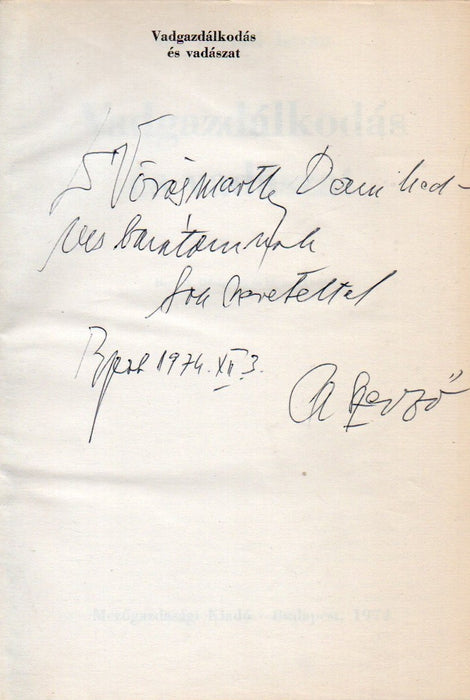 Vadgazdálkodás
és vadászat
Dr Vörösmarthy Dani ked-
ves barátomnak
Sok szeretettel
Bpest 1974. XII. 3.
A szerző
Vadgazdálkodás
Mezőgazdasági Kiadó · Budapest, 1974